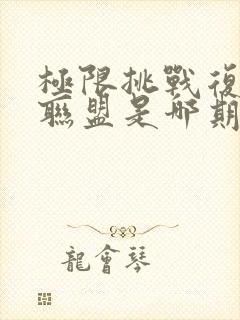 極限挑戰復
聯盟是哪期
龍會琴